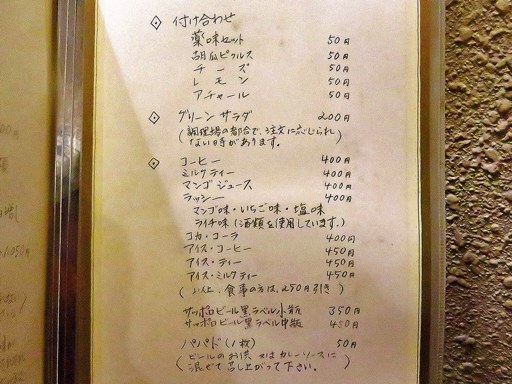 付け合わせ
薬味セット 50円
胡瓜ピクルス 50円
チーズ 50円
レモン 50円
アチャール 50円
グリーンサラダ 200円
(調理場の都合で、注文に応じられ
ない時があります。)
コーヒー 400円
ミルクティー 400円
マンゴジュース 400円
ラッシー 400円
マンゴ味・いちご味・塩味
ライチ味(酒類を使用しています。)
コカ・コーラ 400円
アイス・コーヒー 450円
アイス・ティー 450円
アイス・ミルクティー 450円
(以上、食事の方は、250円引き)
サッポロビール黒ラベル小瓶 350円
サッポロビール黒ラベル中瓶 450円
パパド(1枚) 50円
(ビールのお供 又はカレーソースに
混ぜて召し上がって下さい。)
1,050円